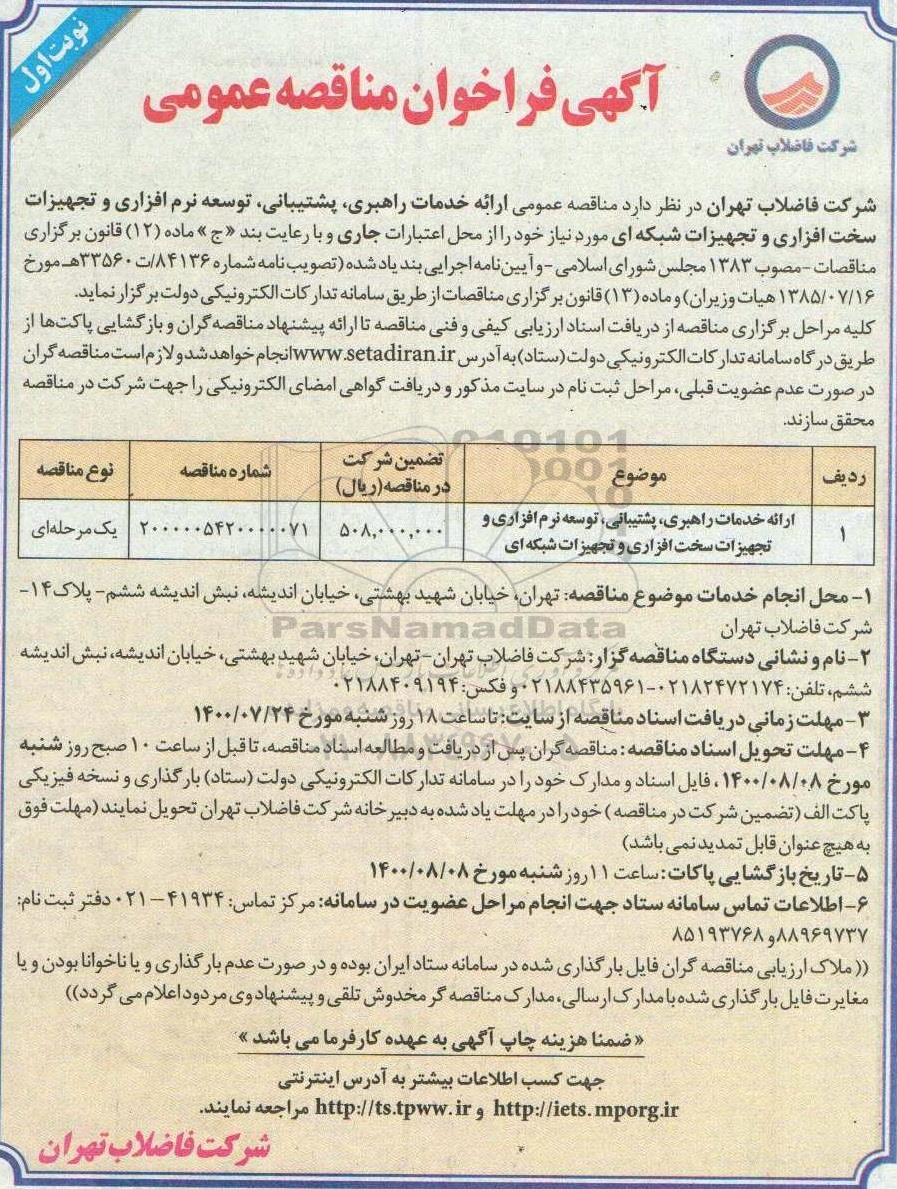 نوبت اول
آگهی فراخوان مناقصه عمومی
شرکت فاضلاب تهران
شرکت فاضلاب تهران در نظر دارد مناقصه عمومی ارائه خدمات راهبری، پشتیبانی، توسعه نرم افزاری و تجهیزات
سخت افزاری و تجهیزات شبکه ای مورد نیاز خود را از محل اعتبارات جاری و با رعایت بند «ج» ماده (۱۲) قانون برگزاری
مناقصات -مصوب ۱۳۸۳ مجلس شورای اسلامی -و آیین‌نامه اجرایی بند یاد شده (تصویب نامه شماره ۸۴۱۳۶/ت۳۳۵۶۰هـ مورخ
۱۳۸۵/۰۷/۱۶ هیات وزیران) و ماده (۱۳) قانون برگزاری مناقصات از طریق سامانه تدارکات الکترونیکی دولت برگزار نماید.
کلیه مراحل برگزاری مناقصه از دریافت اسناد ارزیابی کیفی و فنی مناقصه تا ارائه پیشنهاد مناقصه‌گران و بازگشایی پاکت‌ها از
طریق درگاه سامانه تدارکات الکترونیکی دولت (ستاد) به آدرس www.setadiran.ir انجام خواهد شد و لازم است مناقصه گران
در صورت عدم عضویت قبلی، مراحل ثبت نام در سایت مذکور و دریافت گواهی امضای الکترونیکی را جهت شرکت در مناقصه
محقق سازند.
ردیف موضوع تضمین شرکت در مناقصه (ریال) شماره مناقصه نوع مناقصه
۱ ارائه خدمات راهبری، پشتیبانی، توسعه نرم افزاری و تجهیزات سخت افزاری و تجهیزات شبکه ای ۵۰۸,۰۰۰,۰۰۰ ۲۰۰۰۰۰۵۴۲۰۰۰۰۰۷۱ یک مرحله‌ای
۱- محل انجام خدمات موضوع مناقصه: تهران، خیابان شهید بهشتی، خیابان اندیشه، نبش اندیشه ششم- پلاک ۱۴-
شرکت فاضلاب تهران
ParsNamadData
۲- نام و نشانی دستگاه مناقصه گزار: شرکت فاضلاب تهران -تهران، خیابان شهید بهشتی، خیابان اندیشه، نبش اندیشه
ششم، تلفن: ۰۲۱۸۲۴۷۲۱۷۴-۰۲۱۸۸۴۳۵۹۶۱ و فکس: ۰۲۱۸۸۴۰۹۱۹۴
۳- مهلت زمانی دریافت اسناد مناقصه از سایت: تا ساعت ۱۸ روز شنبه مورخ ۱۴۰۰/۰۷/۲۴
۴- مهلت تحویل اسناد مناقصه: مناقصه‌گران پس از دریافت و مطالعه اسناد مناقصه، تا قبل از ساعت ۱۰ صبح روز شنبه
مورخ ۱۴۰۰/۰۸/۰۸، فایل اسناد و مدارک خود را در سامانه تدارکات الکترونیکی دولت (ستاد) بارگذاری و نسخه فیزیکی
پاکت الف (تضمین شرکت در مناقصه) خود را در مهلت یاد شده به دبیرخانه شرکت فاضلاب تهران تحویل نمایند (مهلت فوق
به هیچ عنوان قابل تمدید نمی باشد)
۵- تاریخ بازگشایی پاکات: ساعت ۱۱ روز شنبه مورخ ۱۴۰۰/۰۸/۰۸
۶- اطلاعات تماس سامانه ستاد جهت انجام مراحل عضویت در سامانه: مرکز تماس: ۴۱۹۳۴-۰۲۱ دفتر ثبت نام:
۸۸۹۶۹۷۳۷ و ۸۵۱۹۳۷۶۸
(( ملاک ارزیابی مناقصه گران فایل بارگذاری شده در سامانه ستاد ایران بوده و در صورت عدم بارگذاری و یا ناخوانا بودن و یا
مغایرت فایل بارگذاری شده با مدارک ارسالی، مدارک مناقصه گر مخدوش تلقی و پیشنهاد وی مردود اعلام می گردد))
« ضمنا هزینه چاپ آگهی به عهده کارفرما می باشد »
جهت کسب اطلاعات بیشتر به آدرس اینترنتی
http://iets.mporg.ir و http://ts.tpww.ir مراجعه نمایند.
شرکت فاضلاب تهران